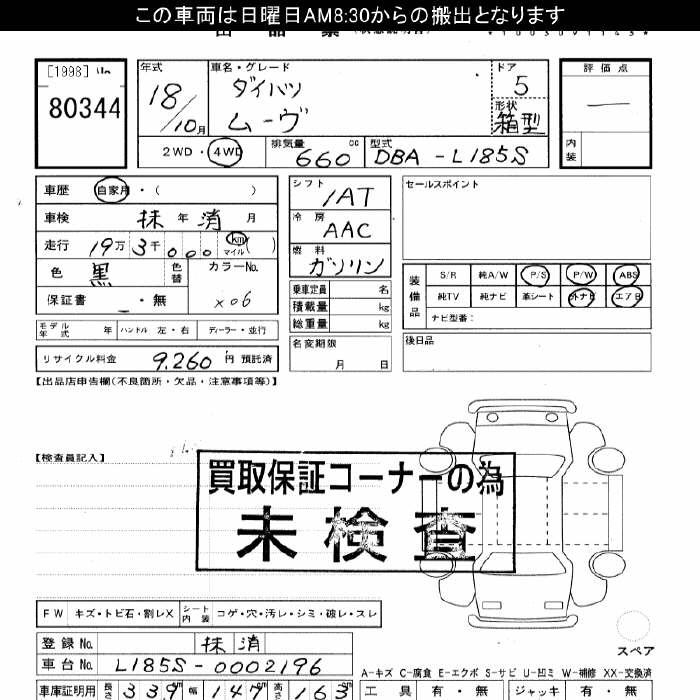 この車両は日曜日AM8:30からの搬出となります
[1998] No
80344
年式 車名・グレード ドア 評価点
18/10月 ダイハツ 5
ムーヴ 形状 箱型
内装
2WD・4WD 排気量 660 cc 型式 DBA-L185S
車歴 自家用・( )
車検 抹 年 消 月
走行 19万3千000 km マイル ( )
色 黒 色替 カラーNo. X06
保証書 ・無
シフト IAT
冷房 AAC
燃料 ガソリン
乗車定員 名
積載量 kg
総重量 kg
名変期限 月 日
セールスポイント
装備品 S/R 純A/W P/S P/W ABS
純TV 純ナビ 革シート 外ナビ エアB
ナビ型番:
後日品
モデル年式 年 ハンドル 左・右 ディーラー・並行
リサイクル料金 9,260 円 預託済
【出品店申告欄(不良箇所・欠品・注意事項等)】
【検査員記入】
買取保証コーナーの為
未検査
FW キズ・トビ石・割レX シート内装 コゲ・穴・汚レ・シミ・破レ・スレ
登録No. 抹消
スペア
車台No. L185S-0002196
A-キズ C-腐食 E-エクボ S-サビ U-凹ミ W-補修 XX-交換済
車庫証明用 長さ 339 cm 幅 147 cm 高さ 163 cm
工具 有・無 ジャッキ 有・無